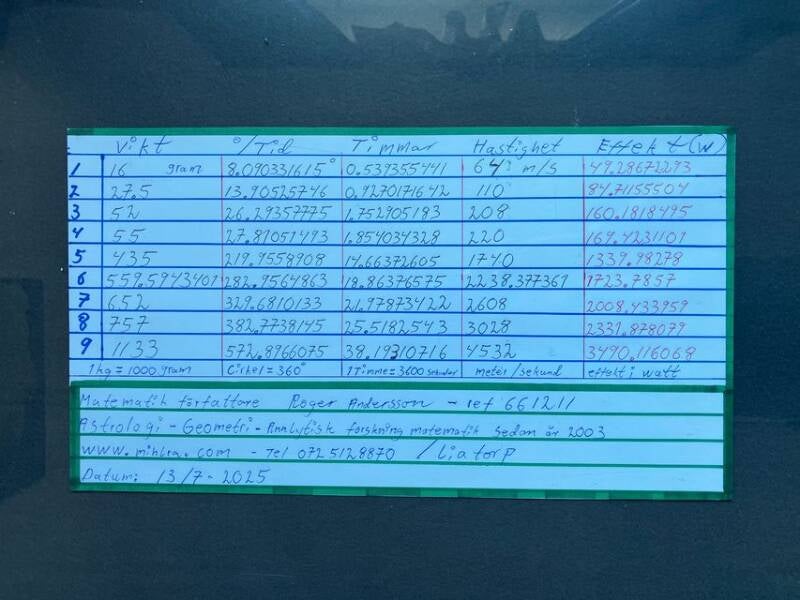 Vikt °/Tid Timmar Hastighet Effekt (W)
1 16 gram 8.090331615° 0.539355441 64 m/s 49.28672293
2 27.5 13.90525746 0.9270171642 110 84.71155504
3 52 26.29357775 1.752905183 208 160.1818495
4 55 27.81051493 1.854034328 220 169.4231101
5 435 219.9558908 14.66372605 1740 1339.98278
6 559.5943401 282.9564863 18.86376575 2238.377361 1723.7857
7 652 329.6810133 21.97873422 2608 2008.433959
8 757 382.7738145 25.5182543 3028 2331.878079
9 1133 572.8966075 38.19310716 4532 3490.116068
1kg = 1000.gram Cirkel = 360° 1 Timme = 3600 sekunder meter/sekund effekt i watt
Matematik författare Roger Andersson - ref 661211
Astrologi - Geometri - Analytisk forskning matematik sedan år 2003
www.mihlra.com - Tel 0725128870 / Liatorp
Datum: 13/7-2025